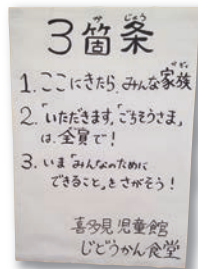 3箇条
1. ここにきたら、みんな家族
2.「いただきます」「ごちそうさま」
は、全員で！
3. いま「みんなのために
できること」をさがそう！
喜多見児童館
じどうかん食堂